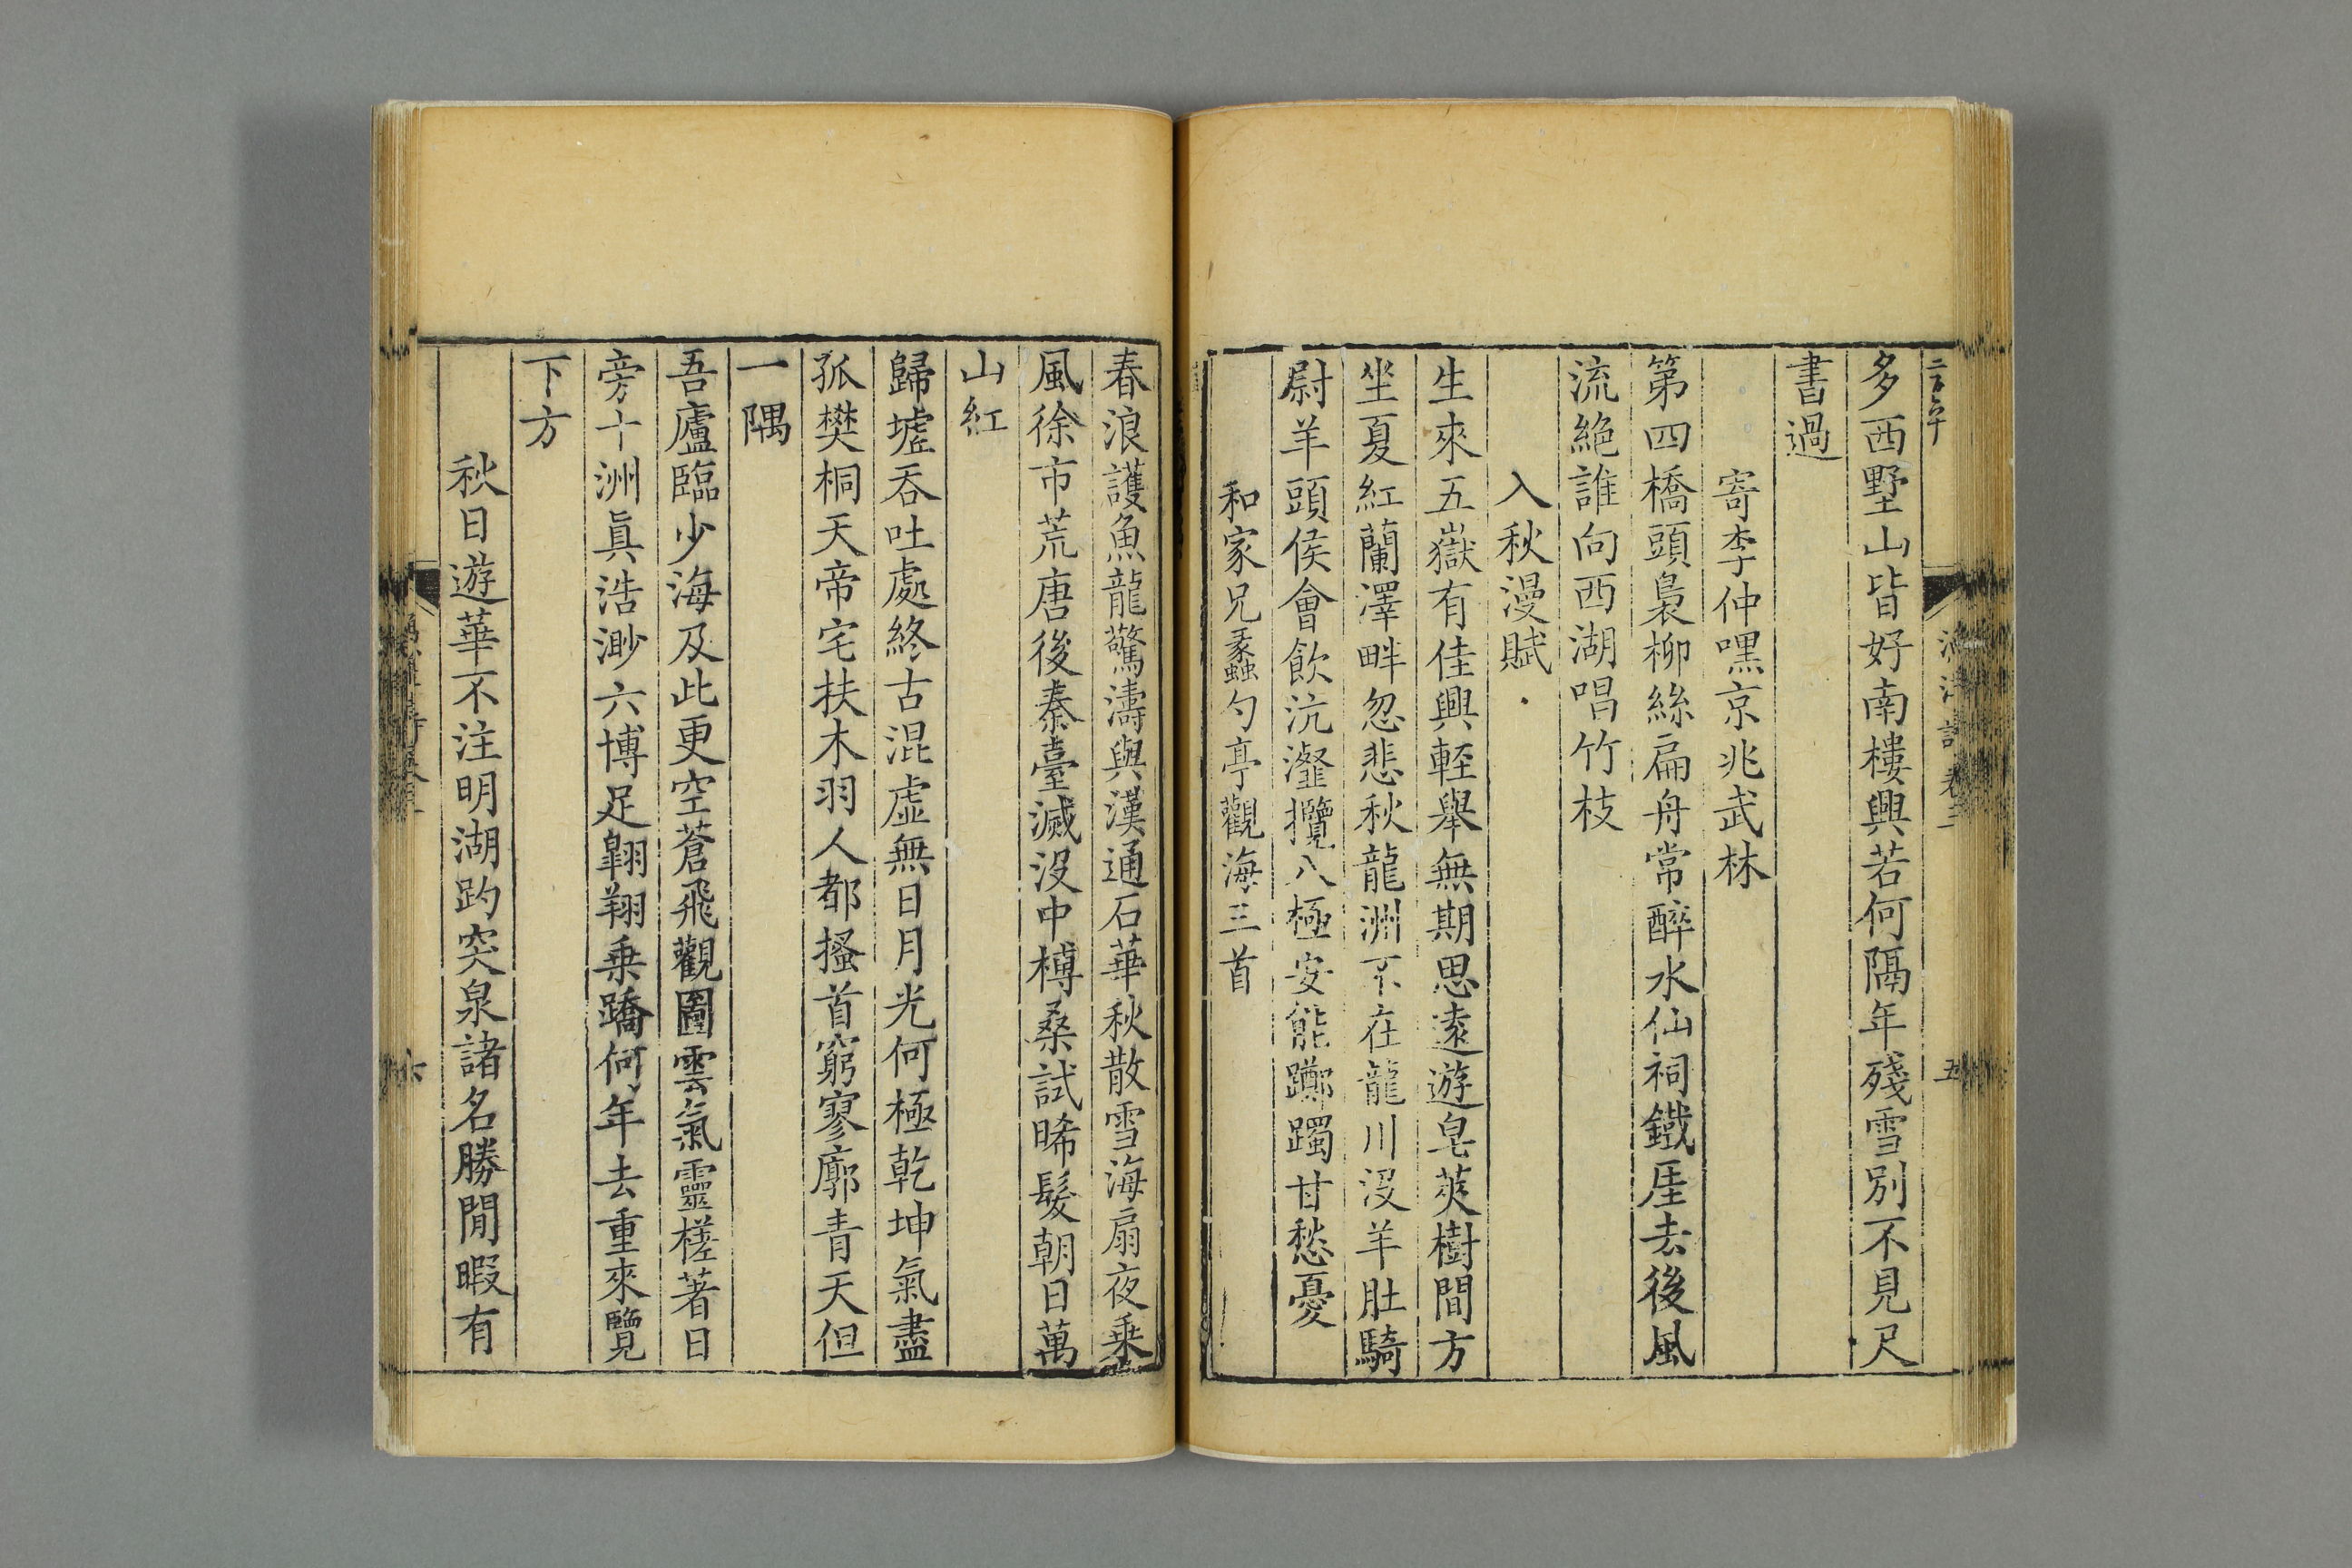 多西墅山皆好南樓興若何隔年殘雪別不見尺
書過
寄李仲嘿京兆武林
第四橋頭裊柳絲扁舟常醉水仙祠鐵厓去後風
流絶誰向西湖唱竹枝
入秋漫賦
生來五嶽有佳興輕舉無期思遠遊皂莢樹間方
坐夏紅蘭澤畔忽悲秋龍淵不在龍川沒羊肚騎
尉羊頭侯會飲沆瀣攬八極安能躑躅甘愁憂
和家兄蠡勺亭觀海三首
春浪護魚龍驚濤與漢通石華秋散雪海扇夜乗
風徐市荒唐後秦臺滅沒中榑桑試晞髮朝日萬
山紅
歸墟吞吐處終古混虛無日月光何極乾坤氣盡
孤樊桐天帝宅扶木羽人都搔首窮寥廓青天但
一隅
吾廬臨少海及此更空蒼飛觀圖雲氣靈槎著日
旁十洲眞浩渺六博足翺翔乗蹻何年去重來覽
下方
秋日遊華不注明湖趵突泉諸名勝閒暇有
六